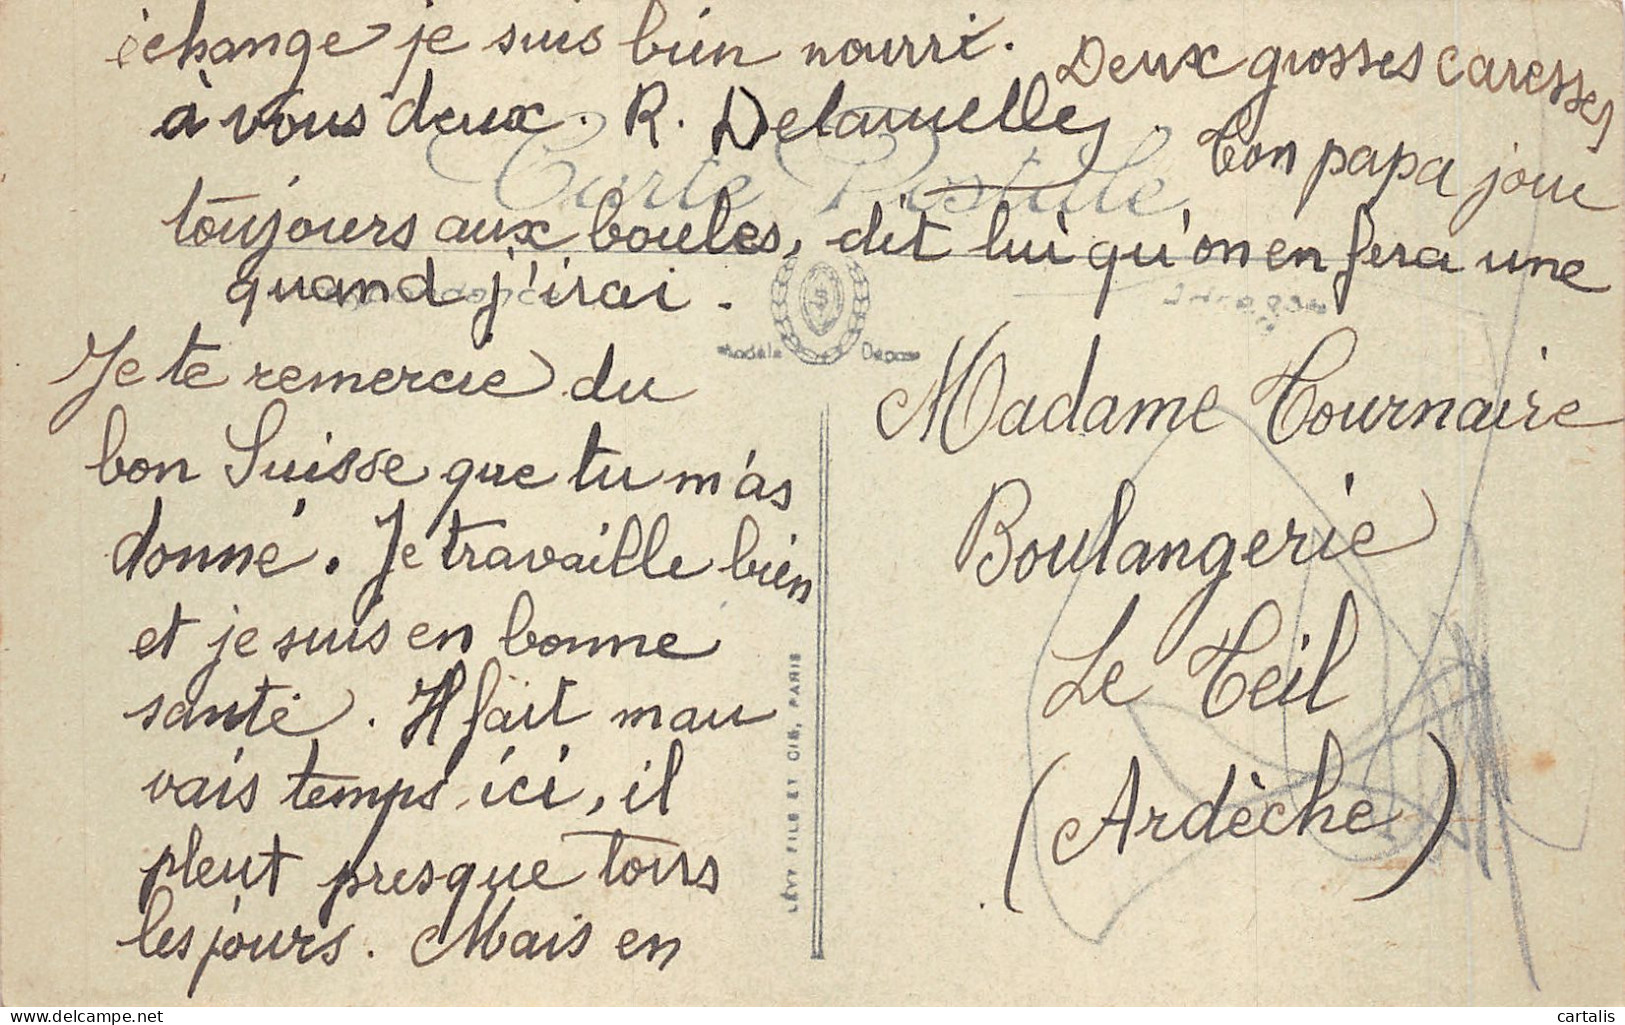 Je te remercie du
bon Suisse que tu m'as
donné. Je travaille bien
et je suis en bonne
santé. Il fait mau
vais temps ici, il
pleut presque tous
les jours. Mais en
échange je suis bien nourri. Deux grosses caresses
à vous deux. R. Delamelle. Ton papa joue
toujours aux boules, dit lui qu'on en fera une
quand j'irai.
Carte Postale
Modèle Déposé
LÉVY FILS ET CIE, PARIS
Madame Tournaire
Boulangerie
Le Teil
(Ardèche)
cartalis